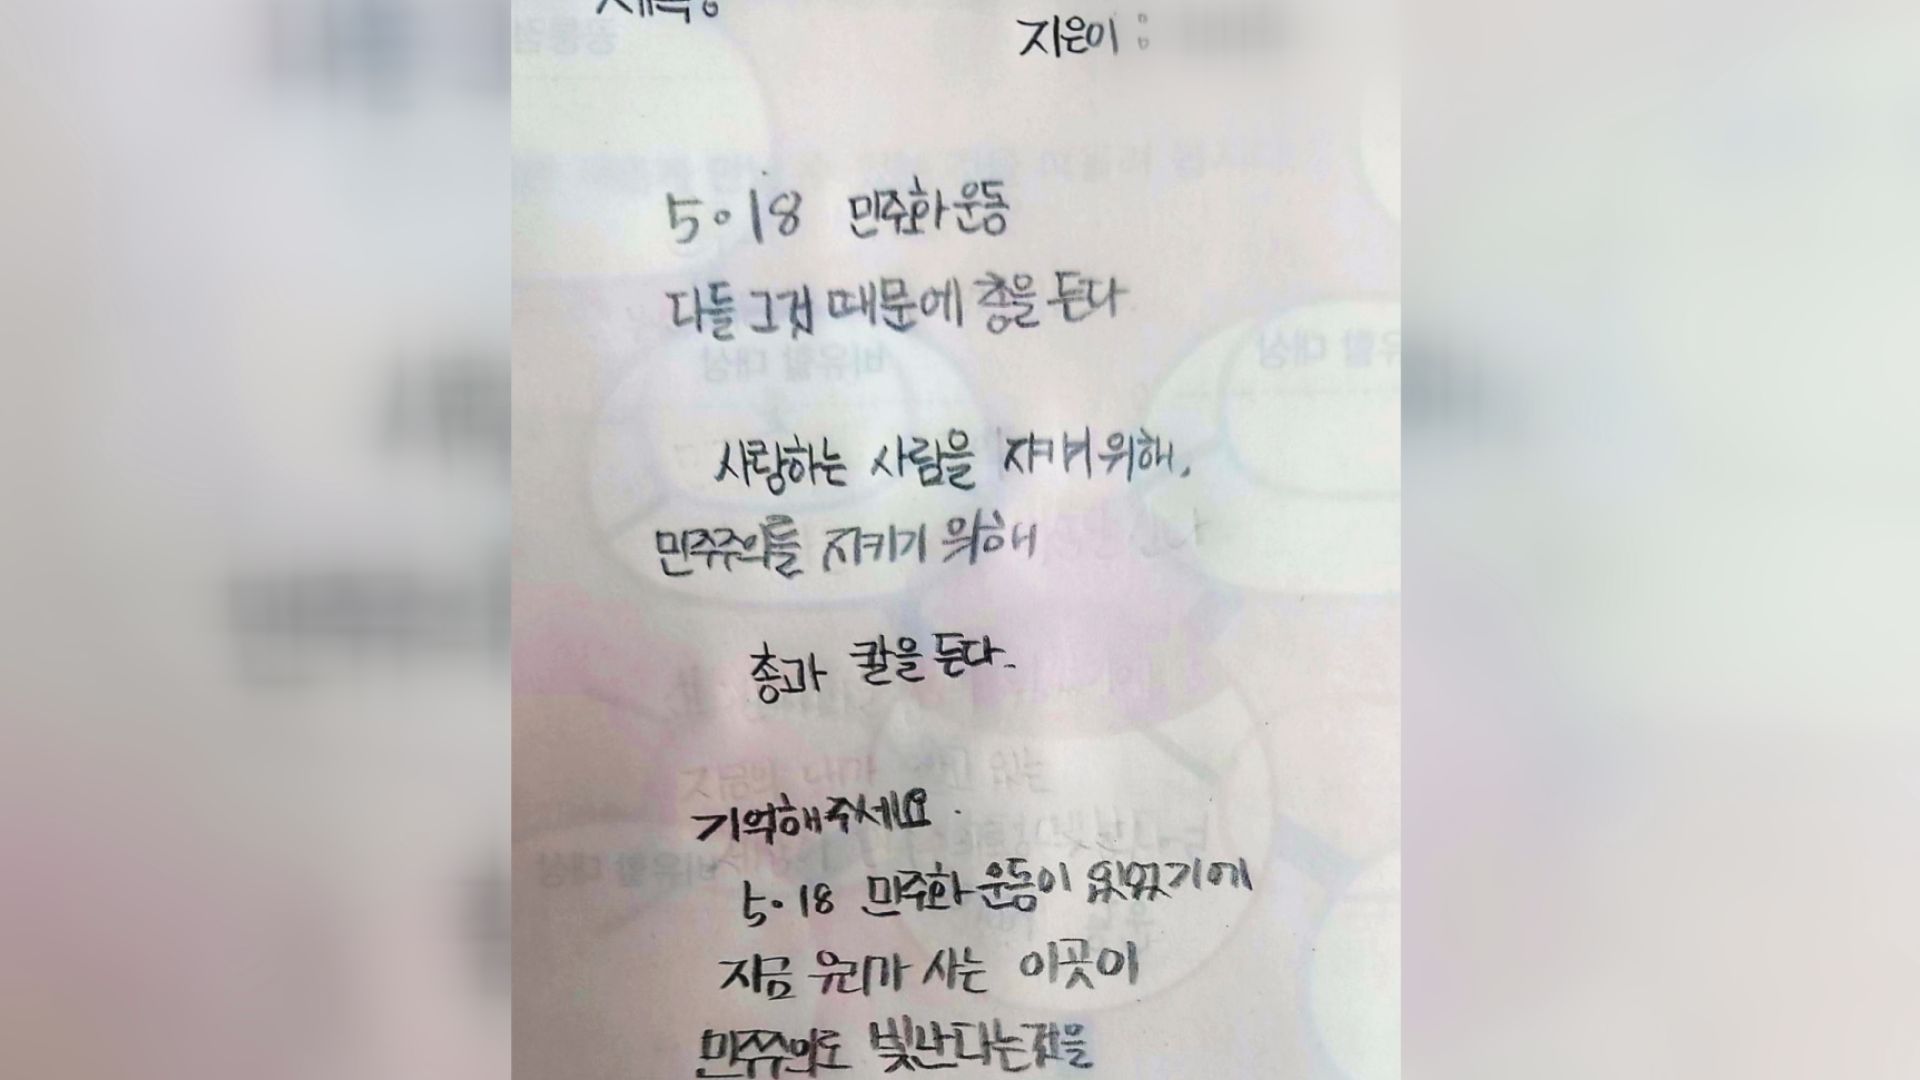 지은이 :
5·18 민주화 운동
다들 그것 때문에 총을 든다
사랑하는 사람을 위해,
민주주의를 지키기 위해
총과 칼을 든다.
기억해주세요.
5·18 민주화 운동이 있었기에
지금 우리가 사는 이곳이
민주주의로 빛난다는것을